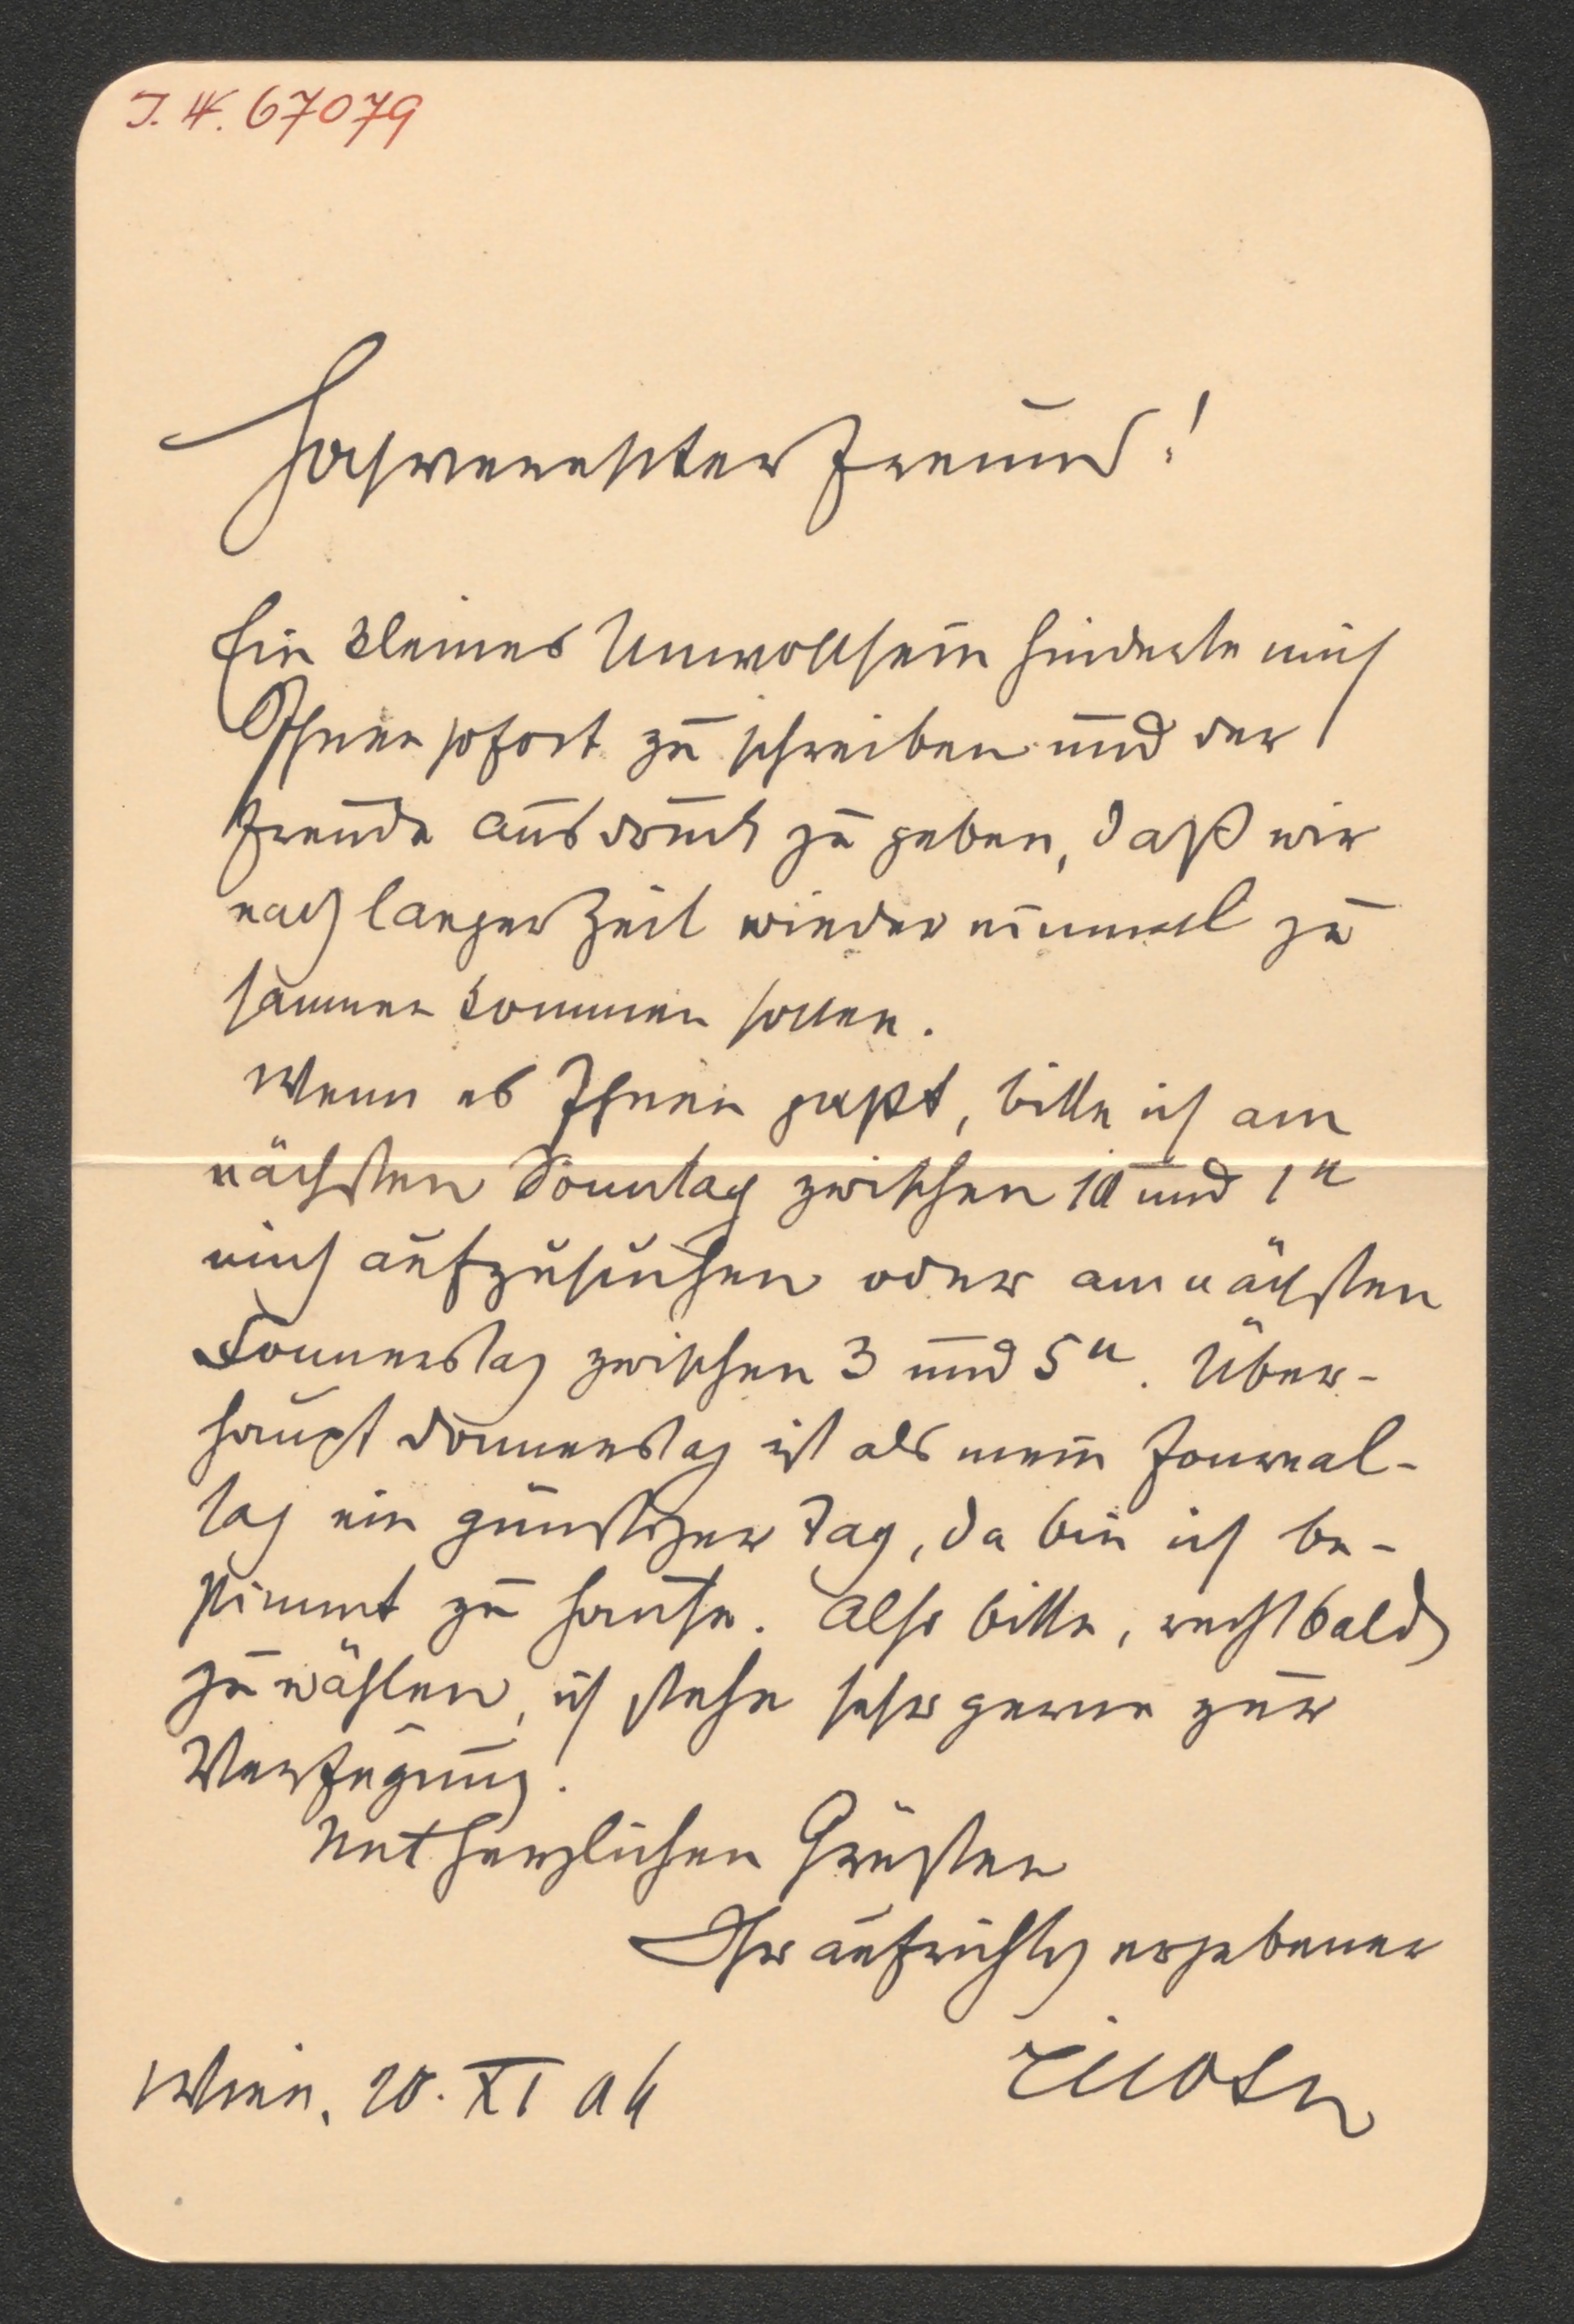 J. N. 67079
Hochverehrter Freund!
Ein kleines Unwohlsein hinderte mich
Ihnen sofort zu schreiben und der
Freude Ausdruck zu geben, daß wir
nach langer Zeit wieder einmal zu
sammen kommen sollen.
Wenn es Ihnen paßt, bitte ich am
nächsten Sonntag zwischen 10 und 1 u
mich aufzusuchen oder am nächsten
Donnerstag zwischen 3 und 5 u. Über-
haupt Donnerstag ist als mein Journal-
tag ein günstiger Tag, da bin ich be-
stimmt zu Hause. Also bitte, recht bald
zu wählen, ich stehe sehr gerne zur
Verfügung.
Mit herzlichen Grüßen
Ihr aufrichtig ergebener
Wien, 20. XI